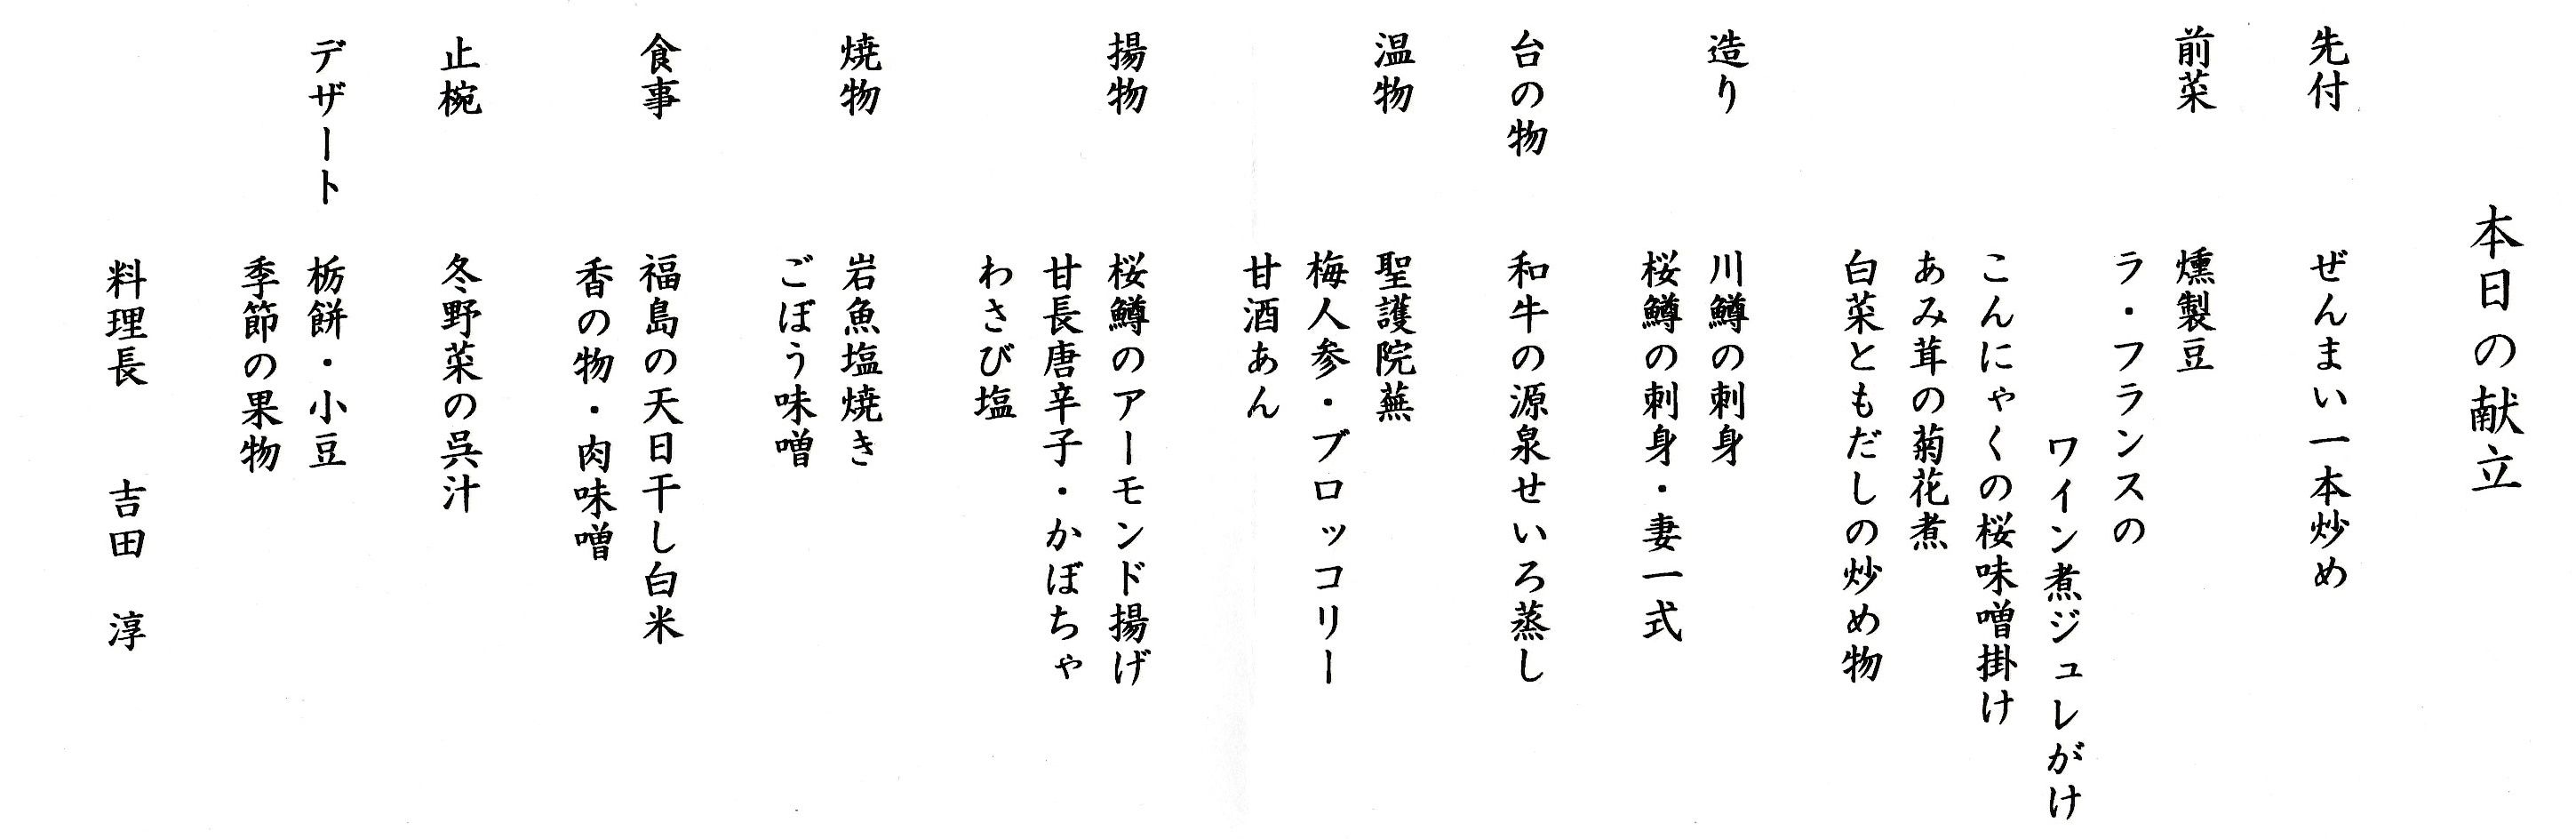 本日の献立
先付 ぜんまい一本炒め
前菜 燻製豆
ラ・フランスの
ワイン煮ジュレがけ
こんにゃくの桜味噌掛け
あみ茸の菊花煮
白菜ともだしの炒め物
造り 川鱒の刺身
桜鱒の刺身・妻一式
台の物 和牛の源泉せいろ蒸し
温物 聖護院蕪
梅人参・ブロッコリー
甘酒あん
揚物 桜鱒のアーモンド揚げ
甘長唐辛子・かぼちゃ
わさび塩
焼物 岩魚塩焼き
ごぼう味噌
食事 福島の天日干し白米
香の物・肉味噌
止椀 冬野菜の呉汁
デザート 栃餅・小豆
季節の果物
料理長 吉田 淳